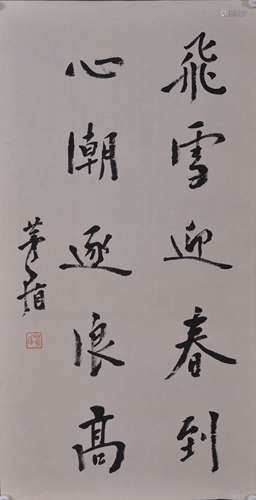 飛雪迎春到
心潮逐浪高